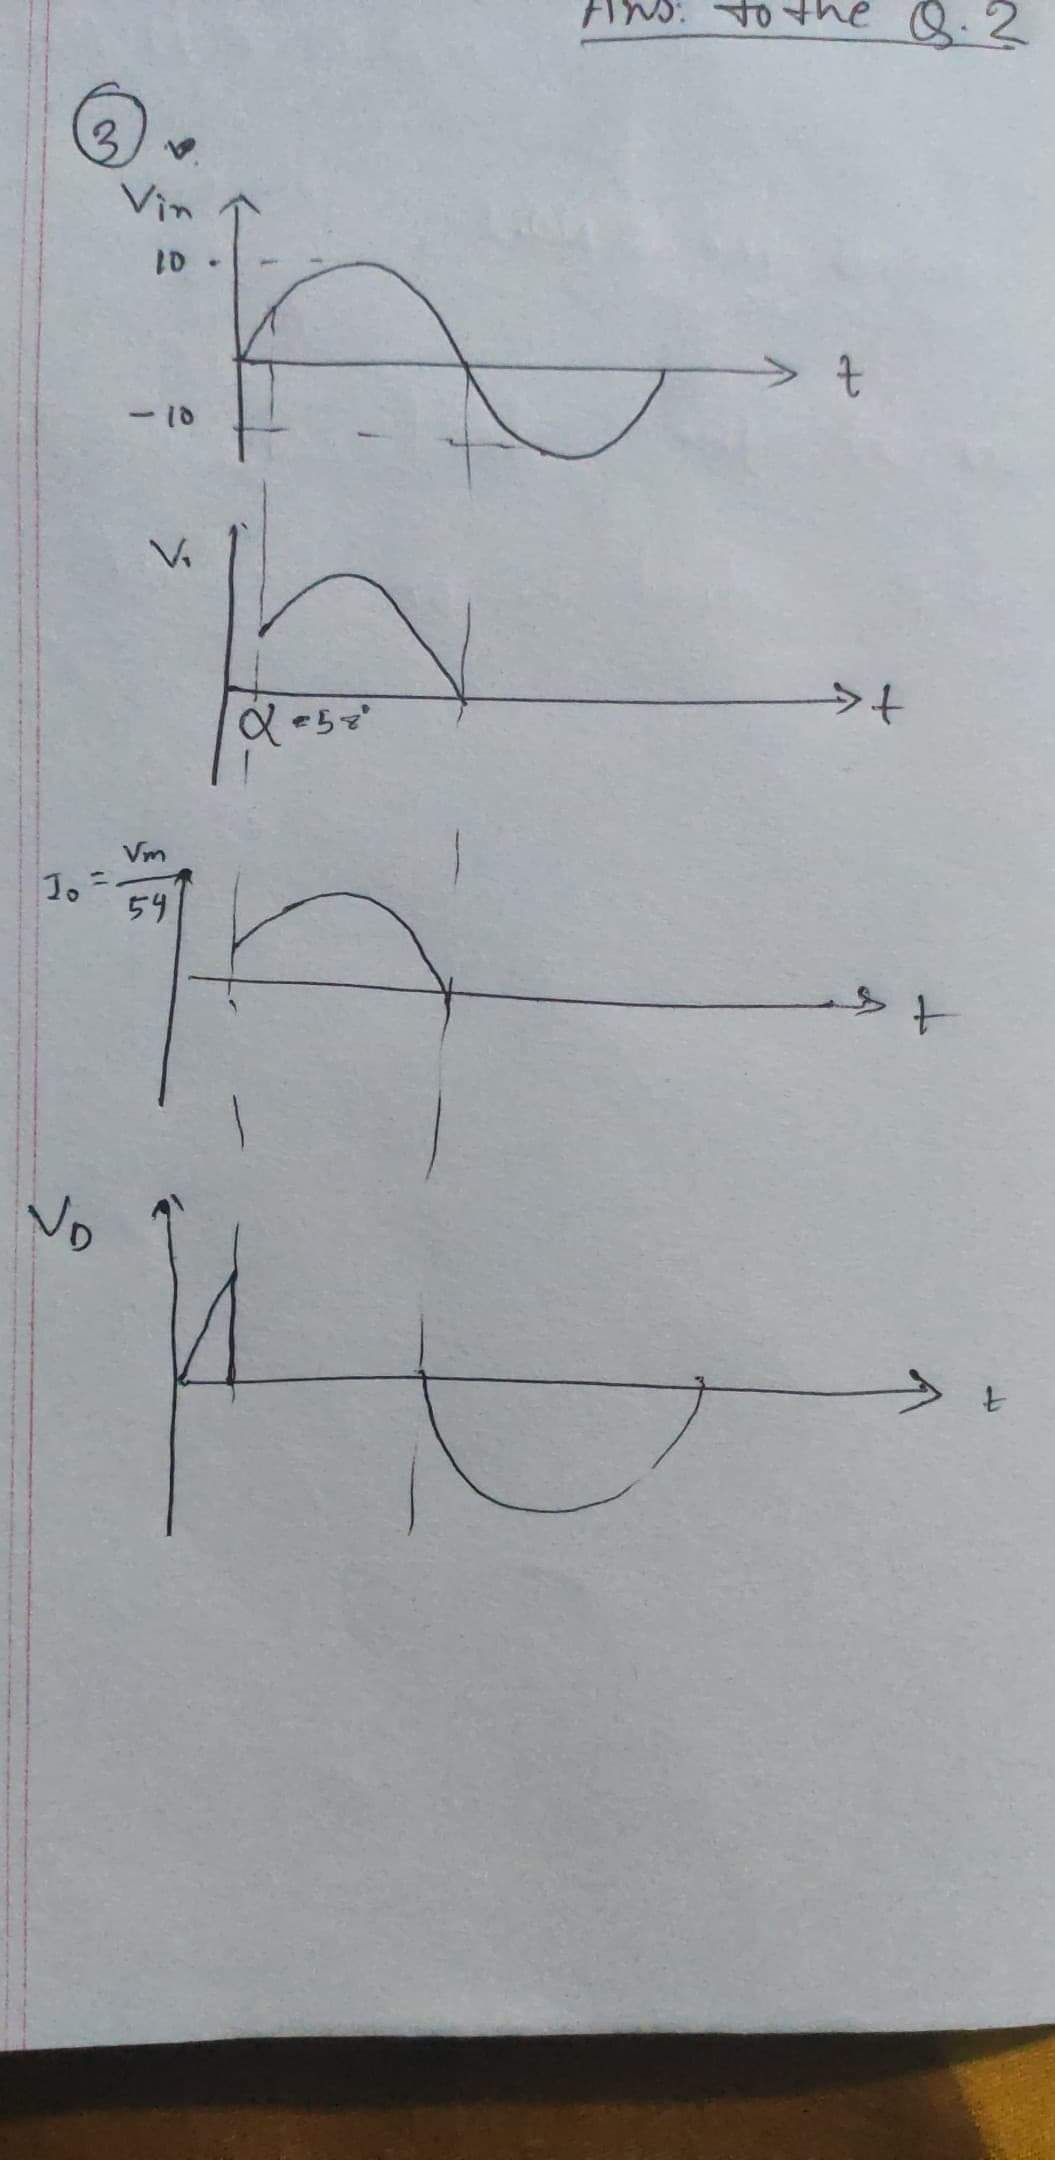 Ans. to the Q. 2
3
Vin
10
-10
t
V.
t
α = 58°
Io = Vm/54
t
VD
t